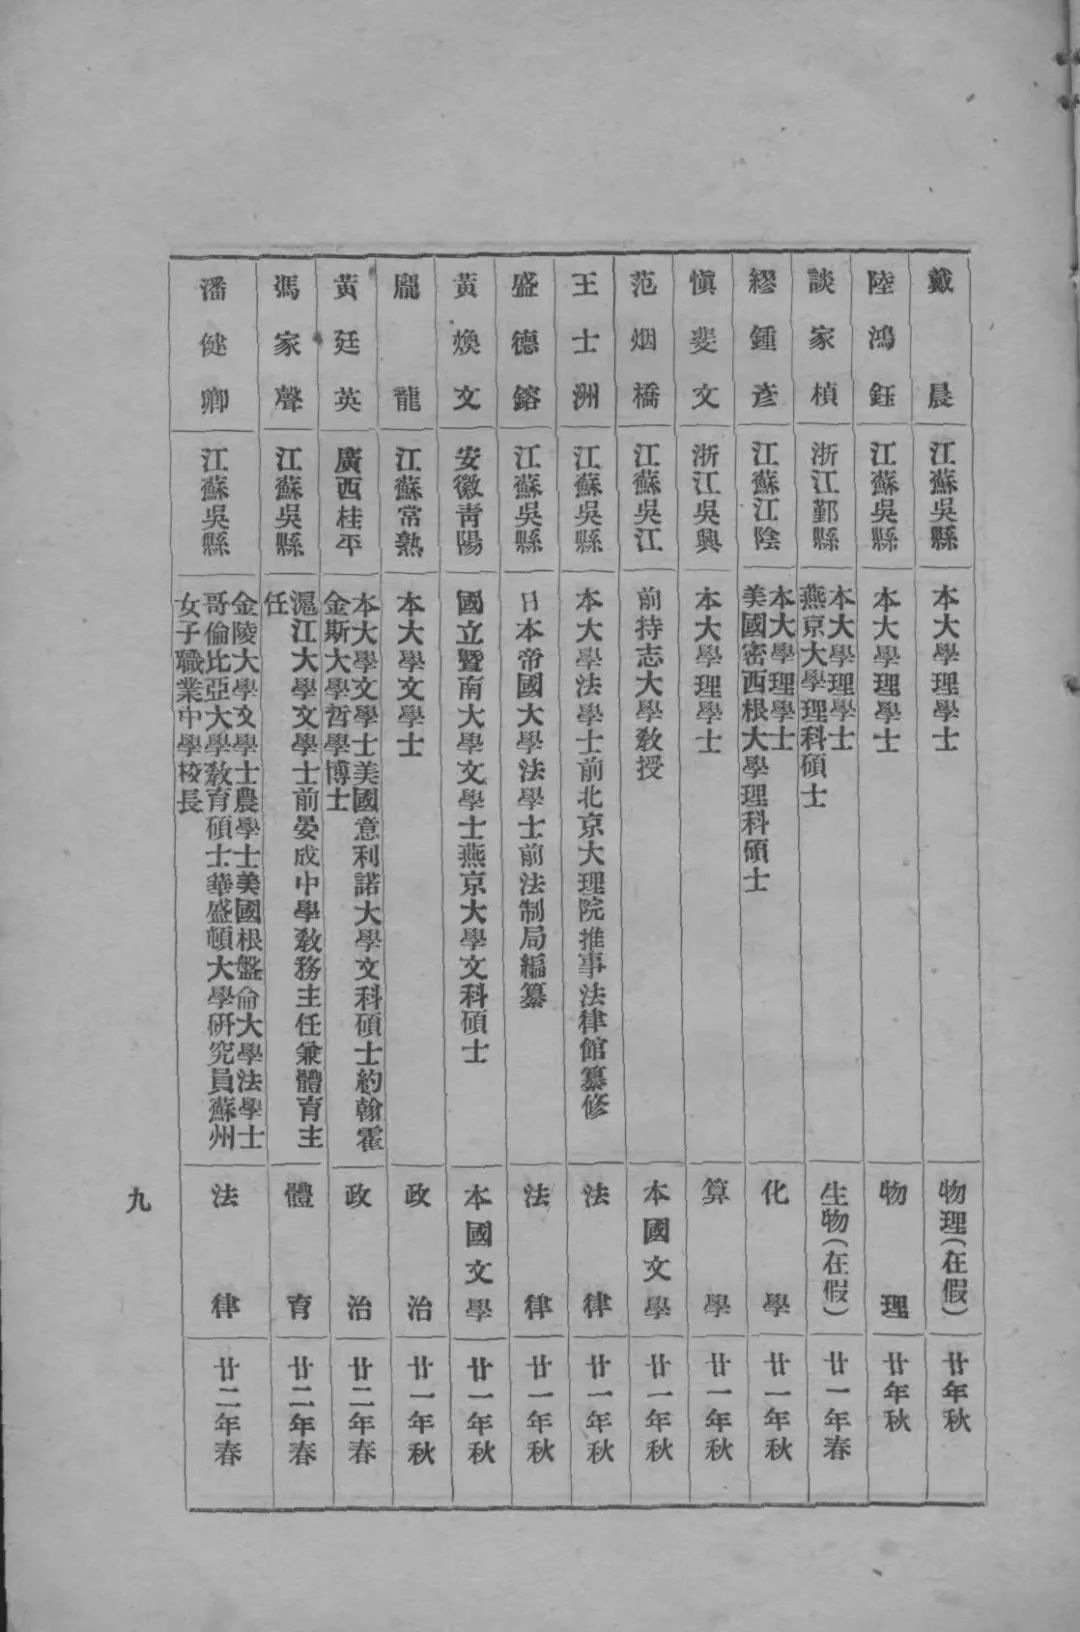 戴晨
江蘇吳縣
本大學理學士
物理(在假)
廿年秋
陸鴻鈺
江蘇吳縣
本大學理學士
物理
廿年秋
談家楨
浙江鄞縣
本大學理學士
燕京大學理科碩士
生物(在假)
廿一年春
繆鍾彥
江蘇江陰
本大學理學士
美國密西根大學理科碩士
化學
廿一年秋
愼斐文
浙江吳興
本大學理學士
算學
廿一年秋
范烟橋
江蘇吳江
前持志大學敎授
本國文學
廿一年秋
王士洲
江蘇吳縣
本大學法學士前北京大理院推事法律館纂修
法律
廿一年秋
盛德鎔
江蘇吳縣
日本帝國大學法學士前法制局編纂
法律
廿一年秋
黃煥文
安徽靑陽
國立曁南大學文學士燕京大學文科碩士
本國文學
廿一年秋
龐龍
江蘇常熟
本大學文學士
政治
廿一年秋
黃廷英
廣西桂平
本大學文學士美國意利諾大學文科碩士約翰霍
金斯大學哲學博士
政治
廿二年春
馮家聲
江蘇吳縣
滬江大學文學士前晏成中學敎務主任兼體育主
任
體育
廿二年春
潘健卿
江蘇吳縣
金陵大學文學士農學士美國根盤侖大學法學士
哥倫比亞大學敎育碩士華盛頓大學硏究員蘇州
女子職業中學校長
法律
廿二年春
九